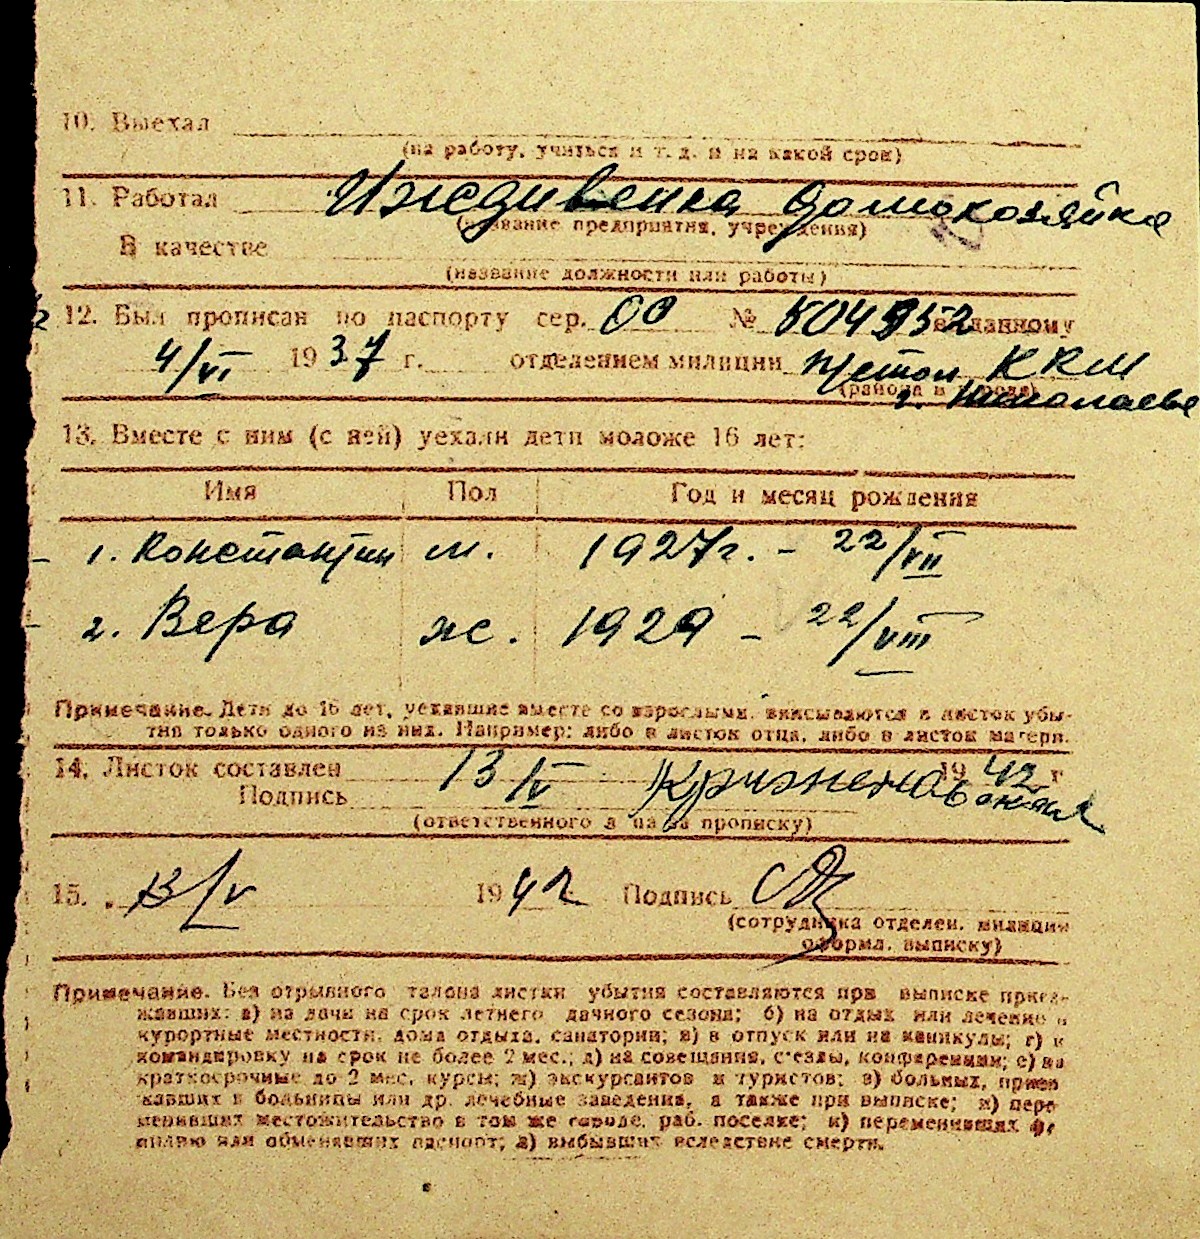 10. Выехал
(на работу, учиться и т. д. и на какой срок)
11. Работал Иждивенка домохозяйка
(название предприятия, учреждения)
В качестве
(название должности или работы)
12. Был прописан по паспорту сер. 00 № 504952 выданному
4/VI 1937 г. отделением милиции ККМ
(района и города)
г. Николаеве
13. Вместе с ним (с ней) уехали дети моложе 16 лет:
Имя Пол Год и месяц рождения
1. Константин м. 1927г. - 22/VII
2. Вера ж. 1929 - 22/VIII
Примечание. Дети до 16 лет, уехавшие вместе со взрослыми, вписываются в листок убы-
тия только одного из них. Например: либо в листок отца, либо в листок матери.
14. Листок составлен 13/V 1942 г
Подпись
(ответственного за прописку)
15. 13/V 1942 Подпись
(сотрудника отделен. милиции
оформл. выписку)
Примечание. Без отрывного талона листки убытия составляются при выписке приез-
жавших: а) на дачи на срок летнего дачного сезона; б) на отдых или лечение в
курортные местности, дома отдыха, санатории; в) в отпуск или на каникулы; г) в
командировку на срок не более 2 мес.; д) на совещания, с'езды, конференции; е) на
краткосрочные до 2 мес. курсы; ж) экскурсантов и туристов; з) больных, приез
жавших в больницы или др. лечебные заведения, а также при выписке; и) пере
менивших местожительство в том же городе, раб. поселке; к) переменивших фа
милию или обменявших паспорт; л) выбывших вследствие смерти.